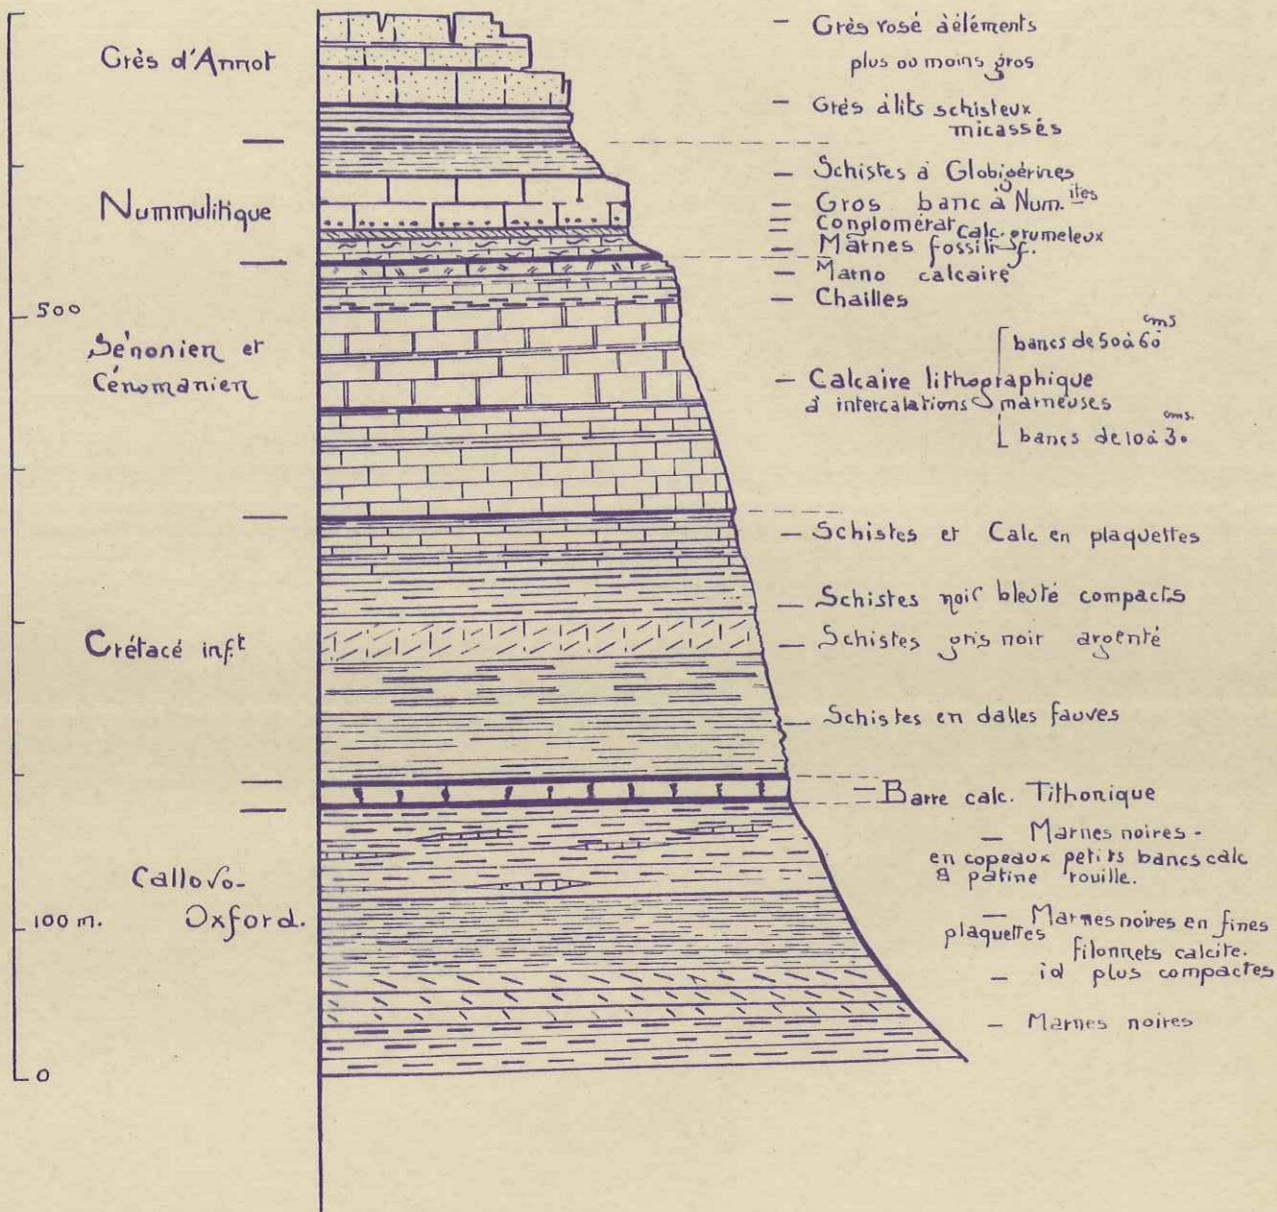 Grès d'Annot
Nummulitique
500
Sénonien et
Cénomanien
Crétacé inf.t
Callovo-
Oxford.
100 m.
0
— Grès rosé à éléments
plus ou moins gros
— Grès à lits schisteux
micassés
— Schistes à Globigérines
— Gros banc à Num.ites
— Conglomérat calc. grumeleux
— Marnes fossilif.
— Marno calcaire
— Chailles
bancs de 50 à 60 cms
— Calcaire lithographique
à intercalations marneuses
bancs de 10 à 30 cms.
— Schistes et Calc en plaquettes
— Schistes noir bleuté compacts
— Schistes gris noir argenté
— Schistes en dalles fauves
— Barre calc. Tithonique
— Marnes noires -
en copeaux petits bancs calc
à patine rouille.
— Marnes noires en fines
plaquettes
filonnets calcite.
— id plus compactes
— Marnes noires